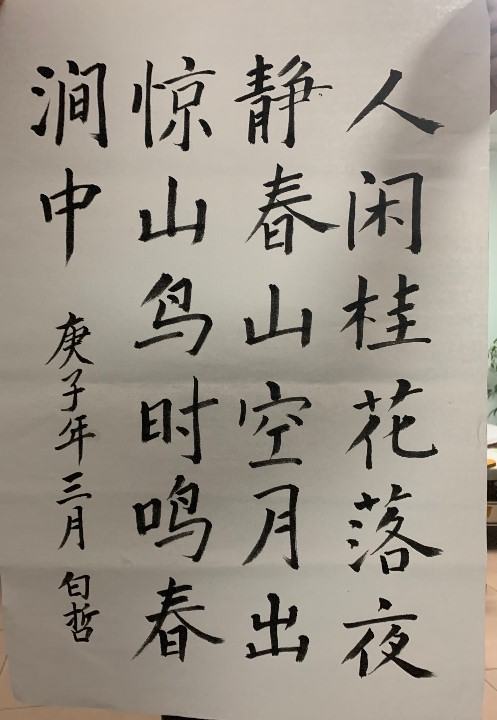 人闲桂花落夜
静春山空月出
惊山鸟时鸣春
涧中
庚子年三月 白哲